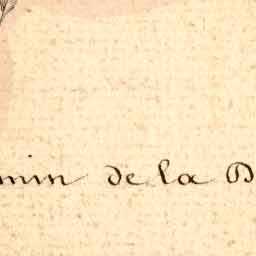 min de la B